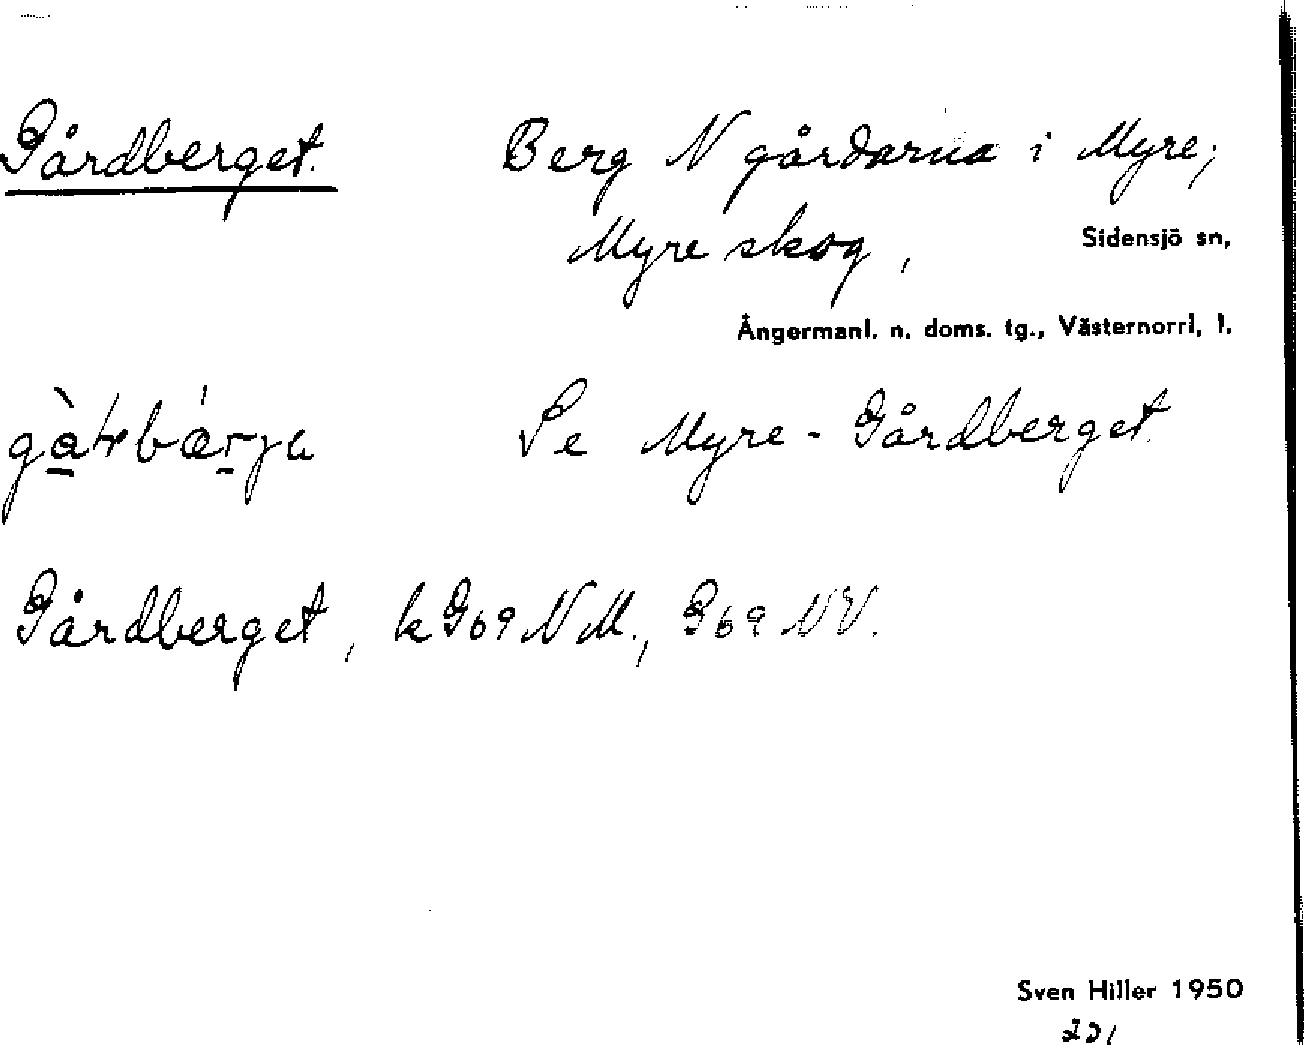 Gårdberget. Berg N gårdarna i Myre;
Myre skog, Sidensjö sn,
Ångermanl. n. doms. tg., Västernorrl, l.
Se Myre-Gårdberget
Gårdberget, k G69 NM., G69 NV.
Sven Hiller 1950